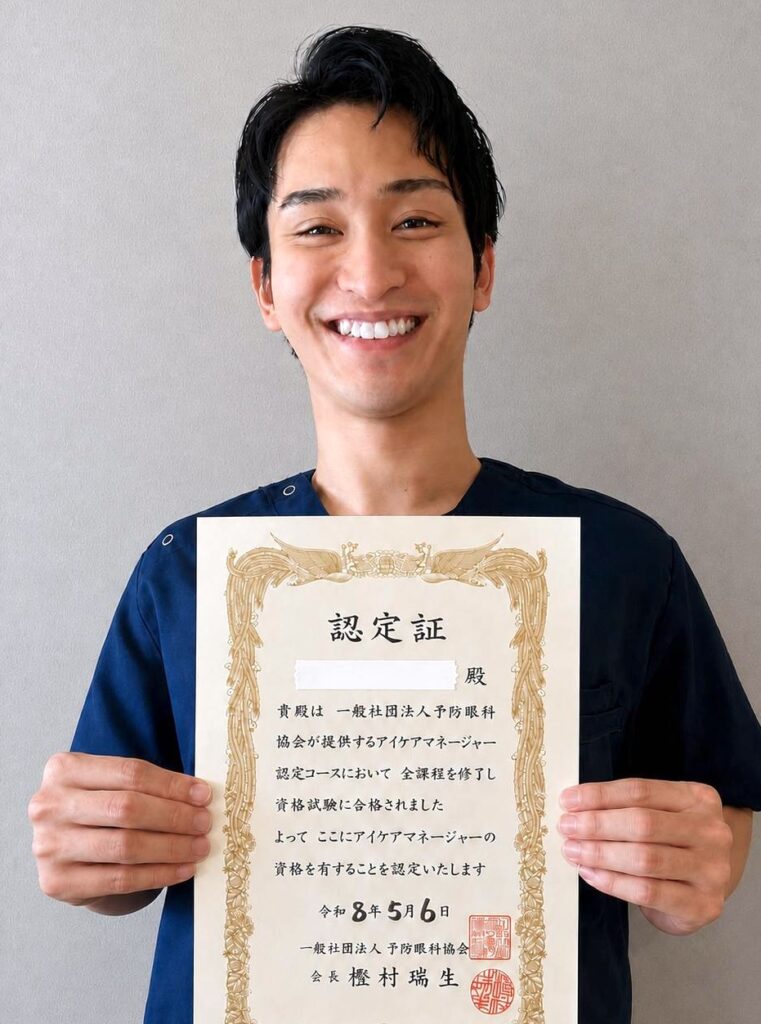 認定証
殿
貴殿は 一般社団法人予防眼科
協会が提供するアイケアマネージャー
認定コースにおいて 全課程を修了し
資格試験に合格されました
よって ここにアイケアマネージャーの
資格を有することを認定いたします
令和8年5月6日
一般社団法人 予防眼科協会
会長 樫村瑞生